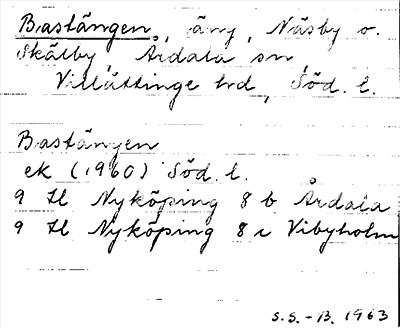 Bastängen, äng, Näsby o.
Skälby, Årdala sn,
Villåttinge hd, Söd. l.
Bastängen
ek (1960) Söd. l.
9 H Nyköping 8 b Årdala
9 H Nyköping 8 c Vibyholm
S.S.-B. 1963